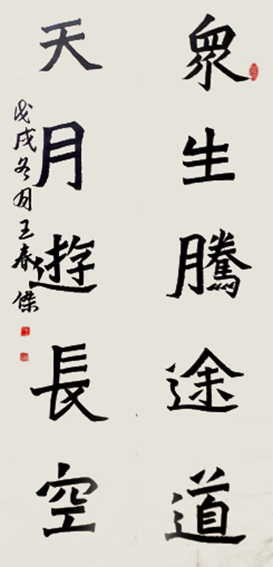 眾生騰途道
天月遊長空
戊戌冬月王春傑